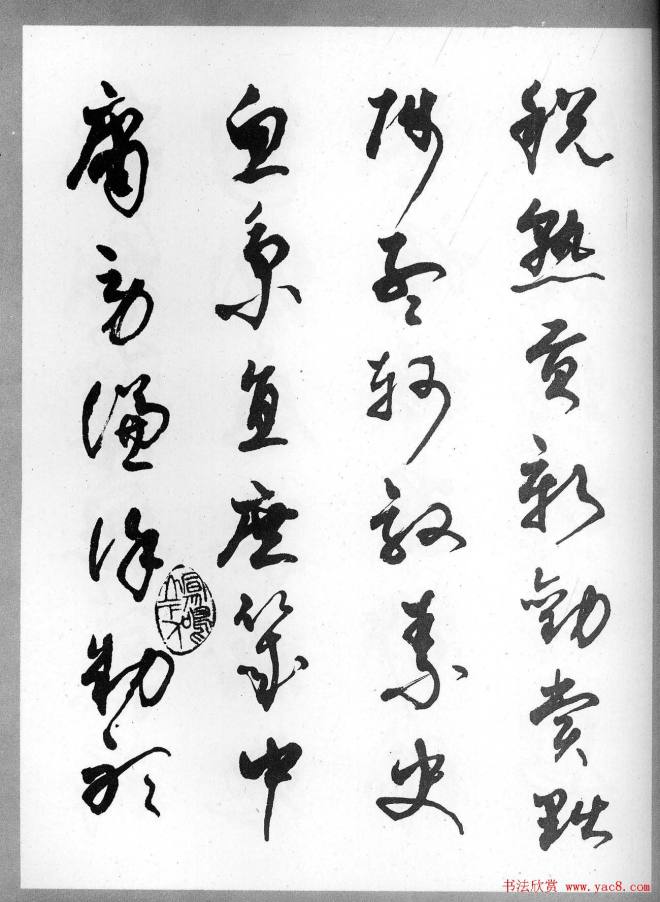 税熟贡新劝赏黜
陟孟轲敦素史
鱼秉直庶几中
庸劳谦谨敕聆
书法欣赏 www.yac8.com